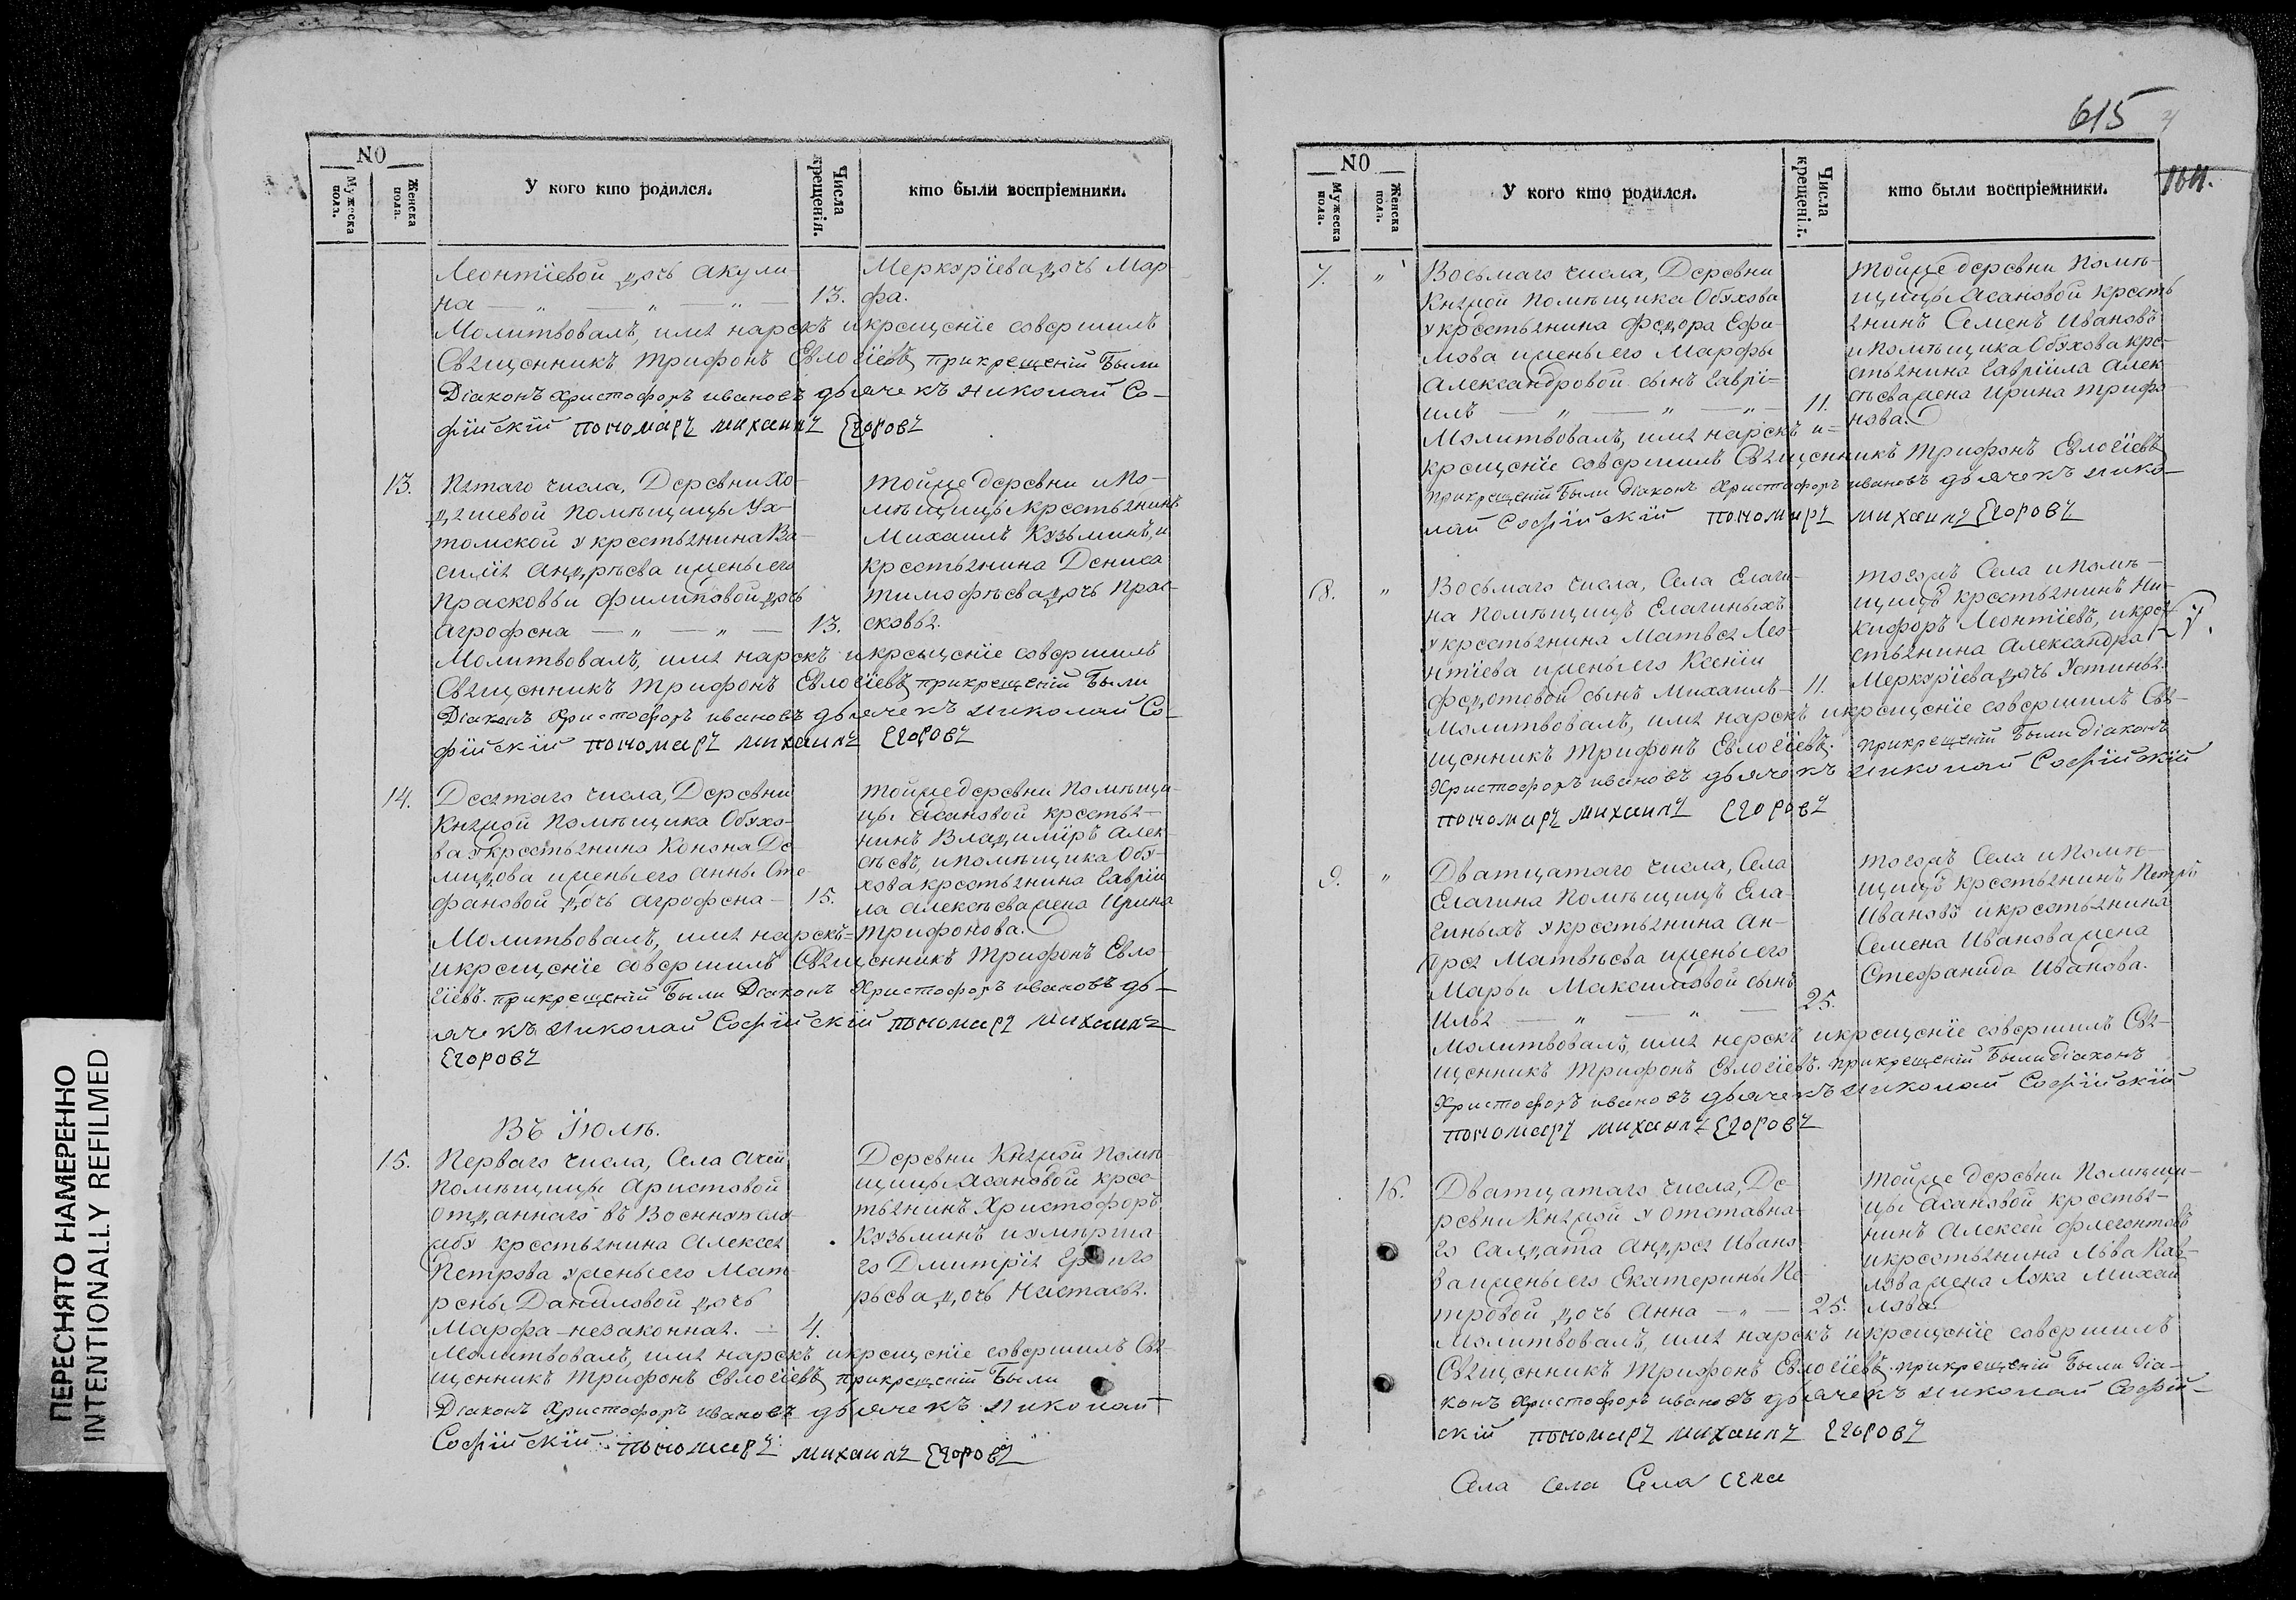 615
1611.
NO
Мужеска пола.
Женска пола.
У кого кто родился.
Числа крещенія.
кто были воспріемники.
Леонтіевой дочь Акули-
на — „ — „ — „ —
13.
Меркуріева дочь Мар-
фа.
Молитвовалъ, имя нарекъ и крещеніе совершилъ
Священникъ Трифонъ Евлогіевъ при крещеніи Были
Діаконъ Христофоръ ивановъ дьячекъ николай Со-
фійскій пономарь михаилъ Егоровъ
13.
Пятаго числа, Деревни Хо-
дяшевой Помѣщицы Ух-
томской у крестьянина Ва-
силія Андрѣева и жены его
Прасковьи Филиповой дочь
Агрофена — „ — „ —
13.
тойже деревни и По-
мѣщицы крестьянинъ
Михаилъ Кузьминъ, и
крестьянина Дениса
Тимофѣева дочь Прас-
ковья.
Молитвовалъ, имя нарекъ и крещеніе совершилъ
Священникъ Трифонъ Евлогіевъ при крещеніи Были
Діаконъ Христофоръ ивановъ дьячекъ николай Со-
фійскій пономарь михаилъ Егоровъ
14.
Десятаго числа, Деревни
Княжой Помѣщика Обухо-
ва у крестьянина Конона Де-
мидова и жены его Анны Сте-
фановой дочь Агрофена —
15.
тойже деревни Помѣщи-
цы Асановой крестья-
нинъ Владиміръ Алек-
сѣевъ, и Помѣщика Обу-
хова крестьянина Гаврии-
ла Алексѣева жена Ирина
Трифонова.
Молитвовалъ, имя нарекъ=
и крещеніе совершилъ Священникъ Трифонъ Евло-
гіевъ. при крещеніи Были Діаконъ Христофоръ ивановъ дь-
ячекъ николай Софійскій пономарь михаилъ
Егоровъ
Въ Іюлѣ.
15.
Перваго числа, Села Ачей
Помѣщицы Аристовой
отданнаго въ Военную слу-
жбу крестьянина Алексея
Петрова у жены его Мат-
рены Даниловой дочь
Марфа—незаконная. —
4.
Деревни Княжой Помѣ-
щицы Асановой крес-
тьянинъ Христофоръ
Кузьминъ и умерша
го Дмитрія
рьева дочь Настасья.
Молитвовалъ, имя нарекъ и крещеніе совершилъ Свя-
щенникъ Трифонъ Евлогіевъ при крещеніи Были
Діаконъ Христофоръ ивановъ дьячекъ николай
Софійскій пономарь михаилъ Егоровъ
NO
Мужеска пола.
Женска пола.
У кого кто родился.
Числа крещенія.
кто были воспріемники.
7.
„
Восьмаго числа, Деревни
Княжой Помѣщика Обухова
у крестьянина Федора Ефи-
мова и жены его Марфы
Александровой сынъ Гаврі=
илъ — „ — „ — „ —
11.
тойже деревни Помѣ-
щицы Асановой кресть
янинъ Семенъ Ивановъ
и Помѣщика Обухова кре-
стьянина Гавріила Алек-
сѣева жена Ирина Трифо-
нова.
Молитвовалъ, имя нарекъ и=
крещеніе совершилъ Священникъ Трифонъ Евлогіевъ
при крещеніи Были Діаконъ Христофоръ ивановъ дьячекъ нико-
лай Софійскій пономарь михаилъ Егоровъ
8.
„
Восьмаго числа, Села Елаги-
на Помѣщицъ Елагиныхъ
у крестьянина Матвея Лео-
нтіева и жены его Ксеніи
Федотовой сынъ Михаилъ —
11.
тогожъ Села и Помѣ-
щицъ крестьянинъ Ни-
кифоръ Леонтіевъ, и кре-
стьянина Александра
Меркуріева дочь Устинья.
7.
Молитвовалъ, имя нарекъ и крещеніе совершилъ Свя-
щенникъ Трифонъ Евлогіевъ. при крещеніи Были діаконъ
Христофоръ ивановъ дьячекъ николай Софійскій
пономарь михаилъ Егоровъ
9.
„
Дватцатаго числа, Села
Елагина Помѣщицъ Ела-
гиныхъ у крестьянина Ан-
дрея Матвѣева и жены его
Марьи Максимовой сынъ
Илья — „ — „ —
25.
тогожъ Села и Помѣ-
щицъ крестьянинъ Петръ
Ивановъ и крестьянина
Семена Иванова жена
Стефанида Иванова.
Молитвовалъ, имя нерекъ и крещеніе совершилъ Свя-
щенникъ Трифонъ Евлогіевъ. при крещеніи Были діаконъ
Христофоръ ивановъ дьячекъ николай Софійскій
пономарь михаилъ Егоровъ
16.
Дватцатаго числа, Де-
ревни Княжой у отставна-
го Салдата Андрея Ивано-
ва и жены его Екатерины Пе-
тровой дочь Анна — „ —
25.
тойже деревни Помѣщи-
цы Асановой крестья-
нинъ Алексей Флегонтовъ
и крестьянина Льва Пав-
лова жена Михай
лова.
Молитвовалъ, имя нарекъ и крещеніе совершилъ
Священникъ Трифонъ Евлогіевъ. при крещеніи Были діа-
конъ Христофоръ ивановъ дьячекъ николай Софій-
скій пономарь михаилъ Егоровъ
Села села Села села
ПЕРЕСНЯТО НАМЕРЕННО
INTENTIONALLY REFILMED